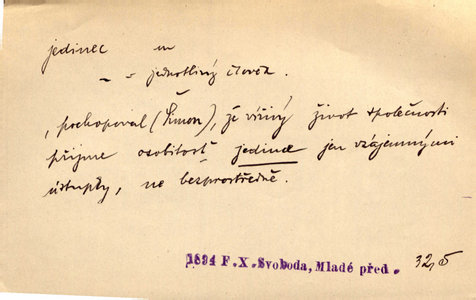 jedinec m
– = jednotlivý člověk.
, pochopoval (Šimon), že vířivý život společnosti
přijme osobitost jedince jen vzájemnými
ústupky, ne bezprostředně.
1894 F.X.Svoboda, Mladé před. 32,5